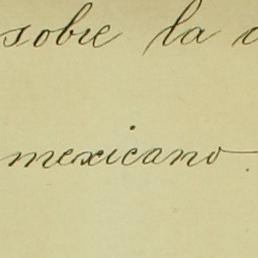 sobre la
mexicano.